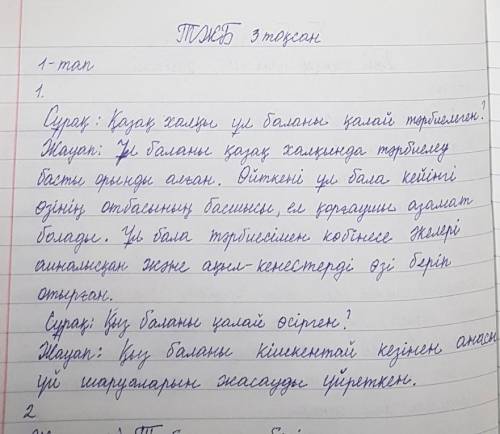 ТЖБ 3 тоқсан
1-тап
1.
Сұрақ: Қазақ халқы ұл баланы қалай тәрбиелеген?
Жауап: Ұл баланы қазақ халқында тәрбиелеу
басты орынды алған. Өйткені ұл бала кейінгі
өзінің отбасының басшысы, ел қорғаушы азамат
болады. Ұл бала тәрбиесімен көбінесе әкелері
айналысқан және ақыл-кеңестерді өзі беріп
отырған.
Сұрақ: Қыз баланы қалай өсірген?
Жауап: Қыз баланы кішкентай кезінен анасы
үй шаруаларын жасауды үйреткен.
2